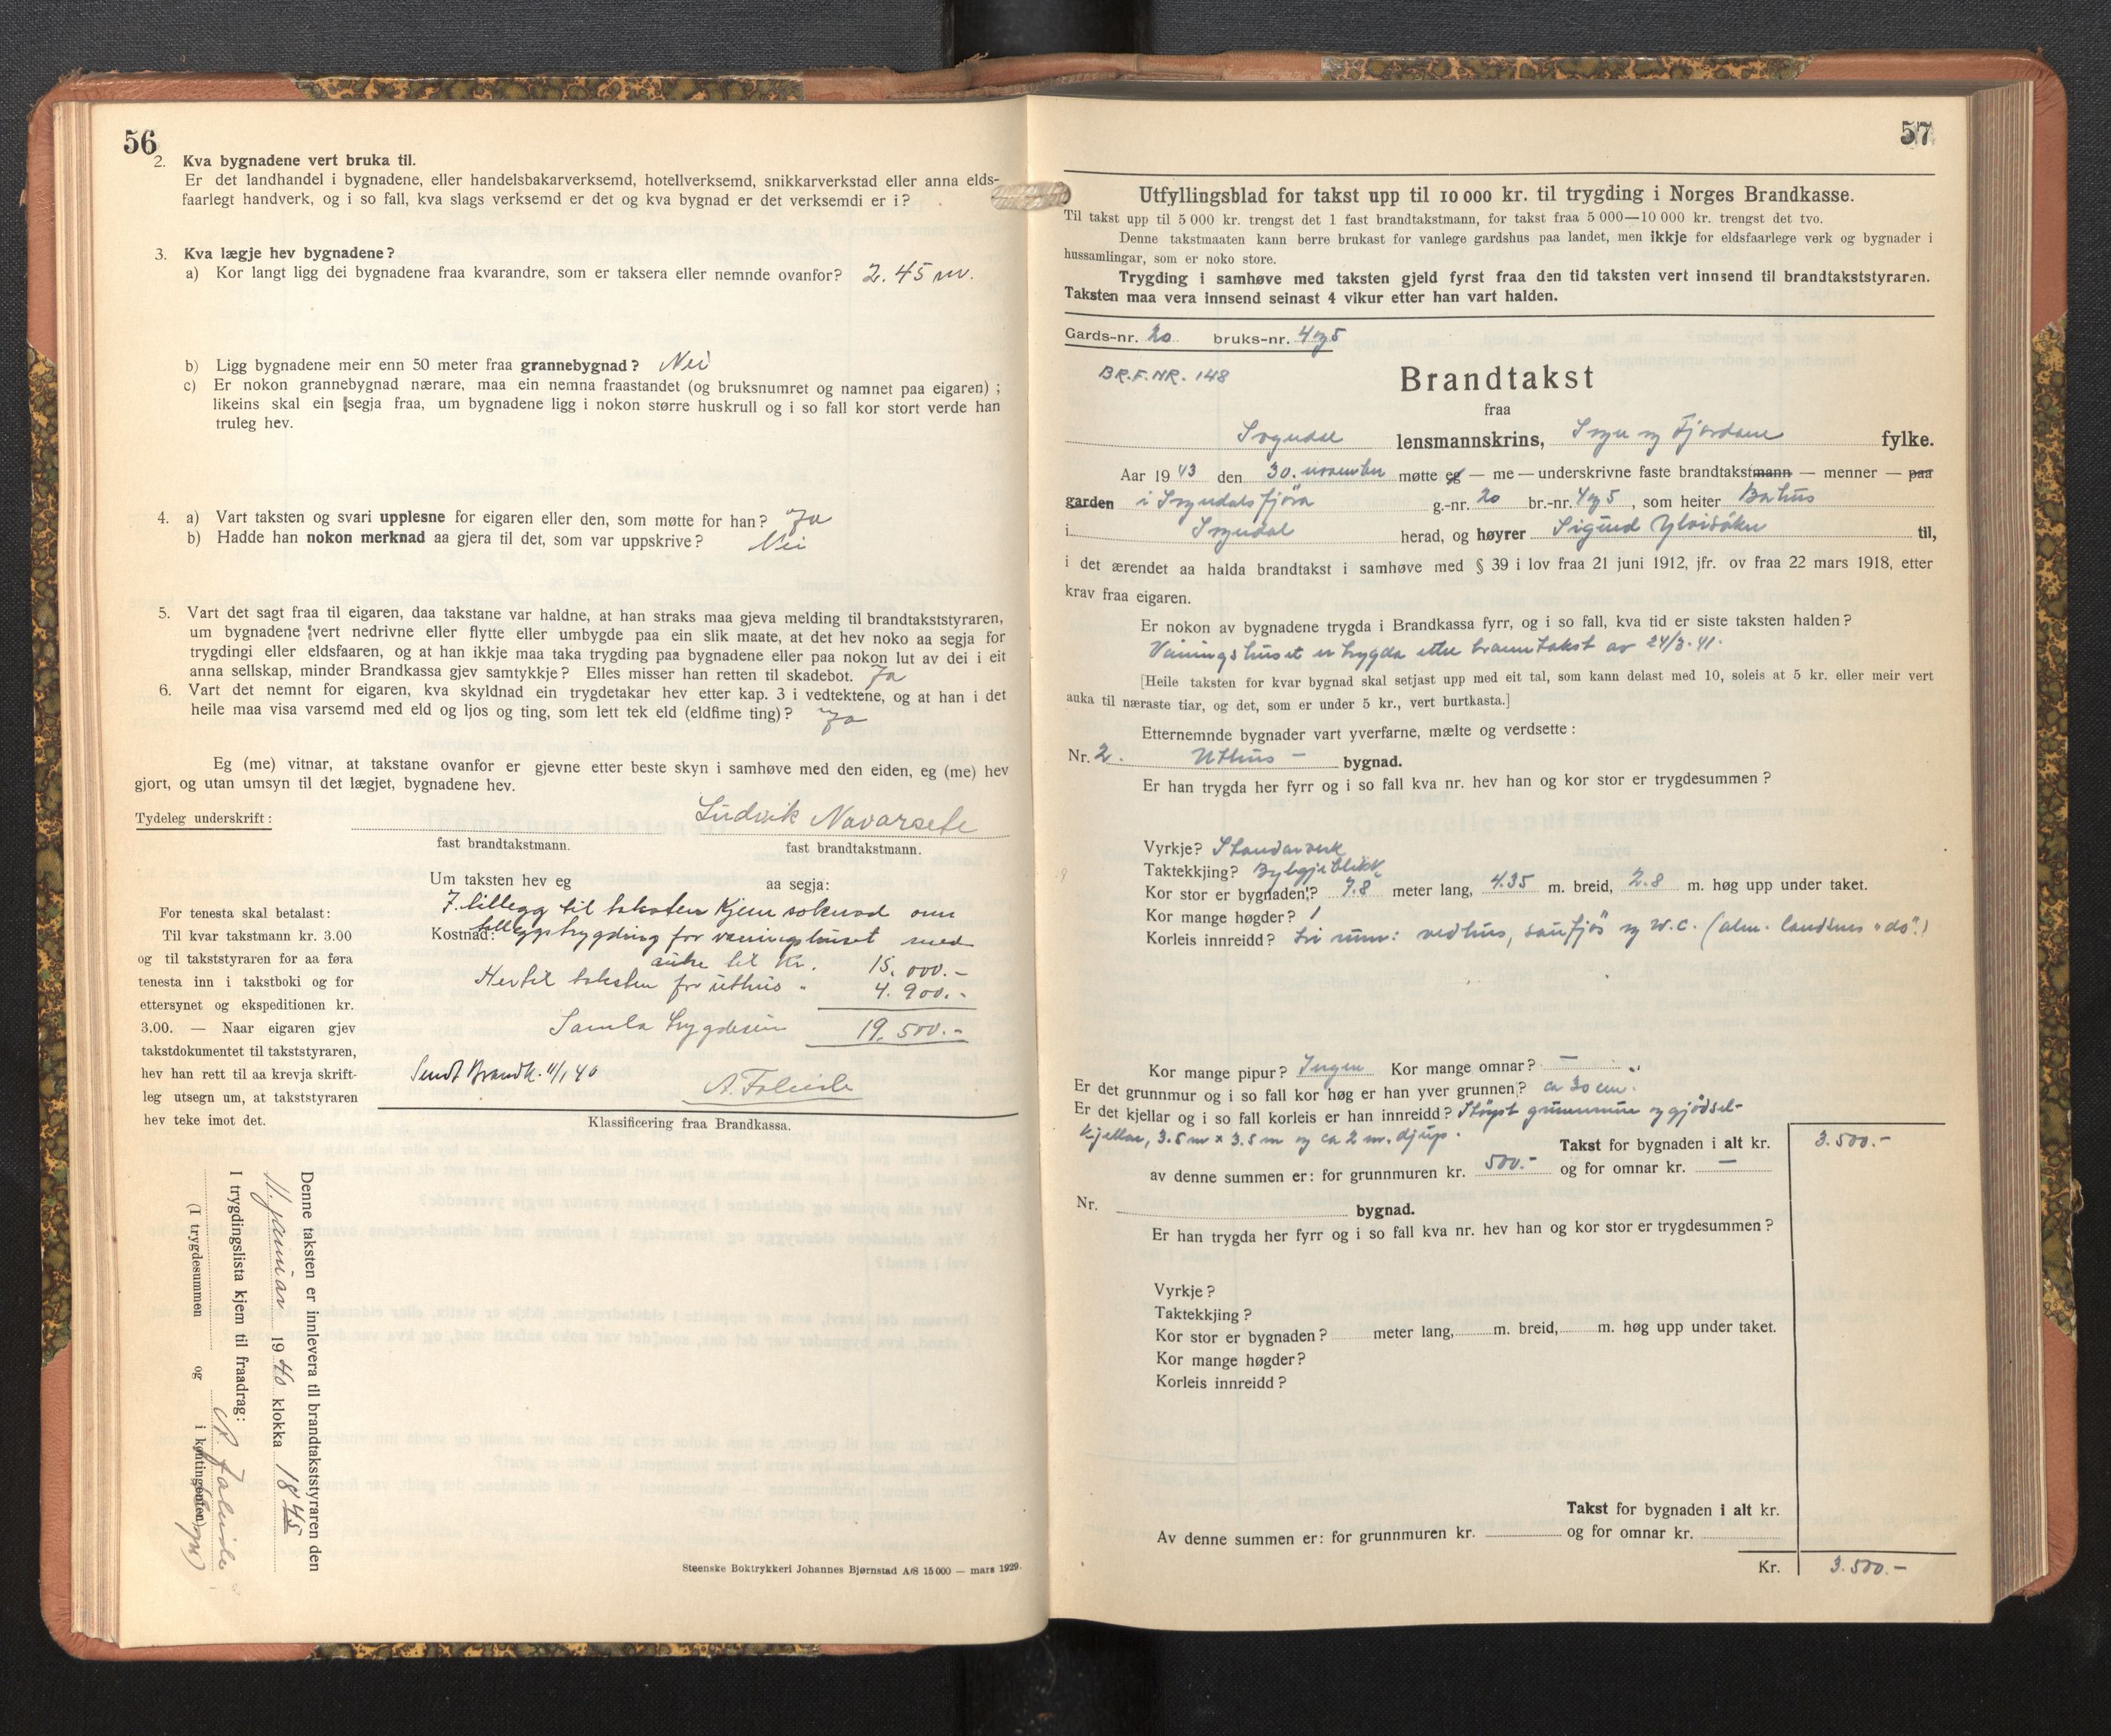 56
2. Kva bygnadene vert bruka til.
Er det landhandel i bygnadene, eller handelsbakarverksemd, hotellverksemd, snikkarverkstad eller anna elds-
faarlegt handverk, og i so fall, kva slags verksemd er det og kva bygnad er det verksemdi er i?
3. Kva lægje hev bygnadene?
a) Kor langt ligg dei bygnadene fraa kvarandre, som er taksera eller nemnde ovanfor? 2.45 m.
b) Ligg bygnadene meir enn 50 meter fraa grannebygnad? Nei
c) Er nokon grannebygnad nærare, maa ein nemna fraastandet (og bruksnumret og namnet paa eigaren);
likeins skal ein segja fraa, um bygnadene ligg i nokon større huskrull og i so fall kor stort verde han
truleg hev.
4. a) Vart taksten og svari upplesne for eigaren eller den, som møtte for han? Ja
b) Hadde han nokon merknad aa gjera til det, som var uppskrive? Nei
5. Vart det sagt fraa til eigaren, daa takstane var haldne, at han straks maa gjeva melding til brandtakststyraren,
um bygnadene vert nedrivne eller flytte eller umbygde paa ein slik maate, at det hev noko aa segja for
trygdingi eller eldsfaaren, og at han ikkje maa taka trygding paa bygnadene eller paa nokon lut av dei i eit
anna sellskap, minder Brandkassa gjev samtykkje? Elles misser han retten til skadebot. Ja
6. Vart det nemnt for eigaren, kva skyldnad ein trygdetakar hev etter kap. 3 i vedtektene, og at han i det
heile maa visa varsemd med eld og ljos og ting, som lett tek eld (eldfime ting)? Ja
Eg (me) vitnar, at takstane ovanfor er gjevne etter beste skyn i samhøve med den eiden, eg (me) hev
gjort, og utan umsyn til det lægjet, bygnadene hev.
Tydeleg underskrift: Ludvik Navarsete
fast brandtakstmann. fast brandtakstmann.
Um taksten hev eg aa segja:
I tillegg til taksten kjem soknad om
Kostnad: tilleggstrygding for vaaningshuset med
auke til kr. 15.000.-
Hertil taksten for uthus " 4.900.-
Samla trygdesum 19.500.-
Sendt Brandk. 11/1 40
A. Faleide
Klassificering fraa Brandkassa.
For tenesta skal betalast:
Til kvar takstmann kr. 3.00
og til takststyraren for aa føra
tenesta inn i takstboki og for
ettersynet og ekspeditionen kr.
3.00. — Naar eigaren gjev
takstdokumentet til takststyraren,
hev han rett til aa krevja skrift-
leg utsegn um, at takststyraren
hev teke imot det.
Denne taksten er innlevera til brandtakststyraren den
11. januar 1940 klokka 18 45
I trygdingslista kjem til fraadrag:
A Faleide
(I trygdesummen og i kontingenten)
Steenske Boktrykkeri Johannes Bjørnstad A/S 15000 — mars 1929.
57
Utfyllingsblad for takst upp til 10 000 kr. til trygding i Norges Brandkasse.
Til takst upp til 5 000 kr. trengst det 1 fast brandtakstmann, for takst fraa 5 000—10 000 kr. trengst det tvo.
Denne takstmaaten kann berre brukast for vanlege gardshus paa landet, men ikkje for eldsfaarlege verk og bygnader i
hussamlingar, som er noko store.
Trygding i samhøve med taksten gjeld fyrst fraa den tid taksten vert innsend til brandtakststyraren.
Taksten maa vera innsend seinast 4 vikur etter han vart halden.
Gards-nr. 20 bruks-nr. 4 og 5
BR.F.NR. 148
Brandtakst
fraa
Sogndal lensmannskrins, Sogn og Fjordane fylke.
Aar 1943 den 30. november møtte eg — me — underskrivne faste brandtakstmann — menner — paa
garden i Sogndalsfjøra g.-nr. 20 br.-nr. 4 og 5, som heiter Barhus
i Sogndal herad, og høyrer Sigurd Ylvisåker til,
i det ærendet aa halda brandtakst i samhøve med § 39 i lov fraa 21 juni 1912, jfr. ov fraa 22 mars 1918, etter
krav fraa eigaren.
Er nokon av bygnadene trygda i Brandkassa fyrr, og i so fall, kva tid er siste taksten halden?
Våningshuset er trygda etter branntakst av 24/3-41.
[Heile taksten for kvar bygnad skal setjast upp med eit tal, som kann delast med 10, soleis at 5 kr. eller meir vert
auka til næraste tiar, og det, som er under 5 kr., vert burtkasta.]
Etternemnde bygnader vart yverfarne, mælte og verdsette:
Nr. 2. Uthus — bygnad.
Er han trygda her fyrr og i so fall kva nr. hev han og kor stor er trygdesummen?
Vyrkje? Standarverk
Taktekkjing? Bylgjeblikk
Kor stor er bygnaden? 7.8 meter lang, 4.35 m. breid, 2.8 m. høg upp under taket.
Kor mange høgder? 1
Korleis innreidd? tri rum: vedhus, saufjös og W.C. (alm. landsens "do".)
Kor mange pipur? Ingen Kor mange omnar? —
Er det grunnmur og i so fall kor høg er han yver grunnen? ca 30 cm.
Er det kjellar og i so fall korleis er han innreidd? Støypt grunnmur og gjødsel-
kjellar, 3.5 m x 3.5 m og ca 2 m. djup.
Takst for bygnaden i alt kr. 3.500.-
av denne summen er: for grunnmuren kr. 500.- og for omnar kr. —
Nr. bygnad.
Er han trygda her fyrr og i so fall kva nr. hev han og kor stor er trygdesummen?
Vyrkje?
Taktekkjing?
Kor stor er bygnaden? meter lang, m. breid, m. høg upp under taket.
Kor mange høgder?
Korleis innreidd?
Takst for bygnaden i alt kr.
Av denne summen er: for grunnmuren kr. og for omnar kr.
Kr. 3.500.-